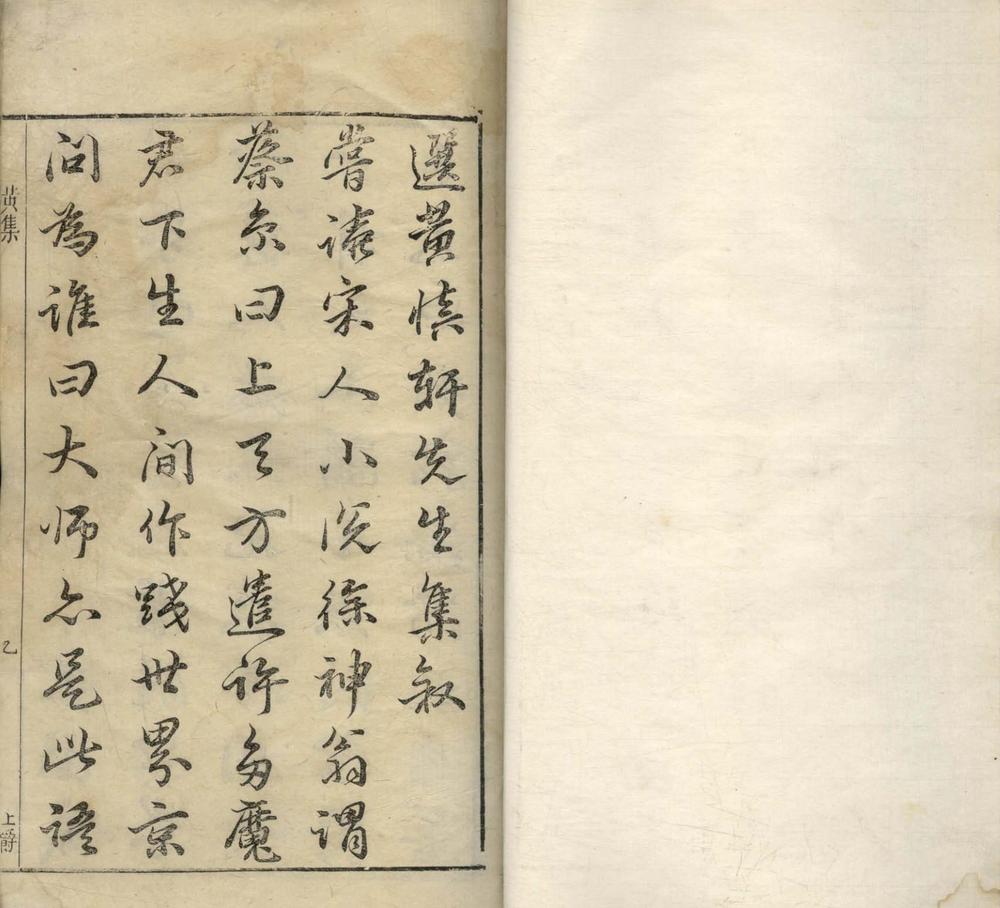 選黃慎軒先生集敘
嘗讀宋人小說徐神翁謂
蔡京曰上天方遣許多魔
君下生人間作踐世界京
問為誰曰大師亦是此語
黃集
上爵